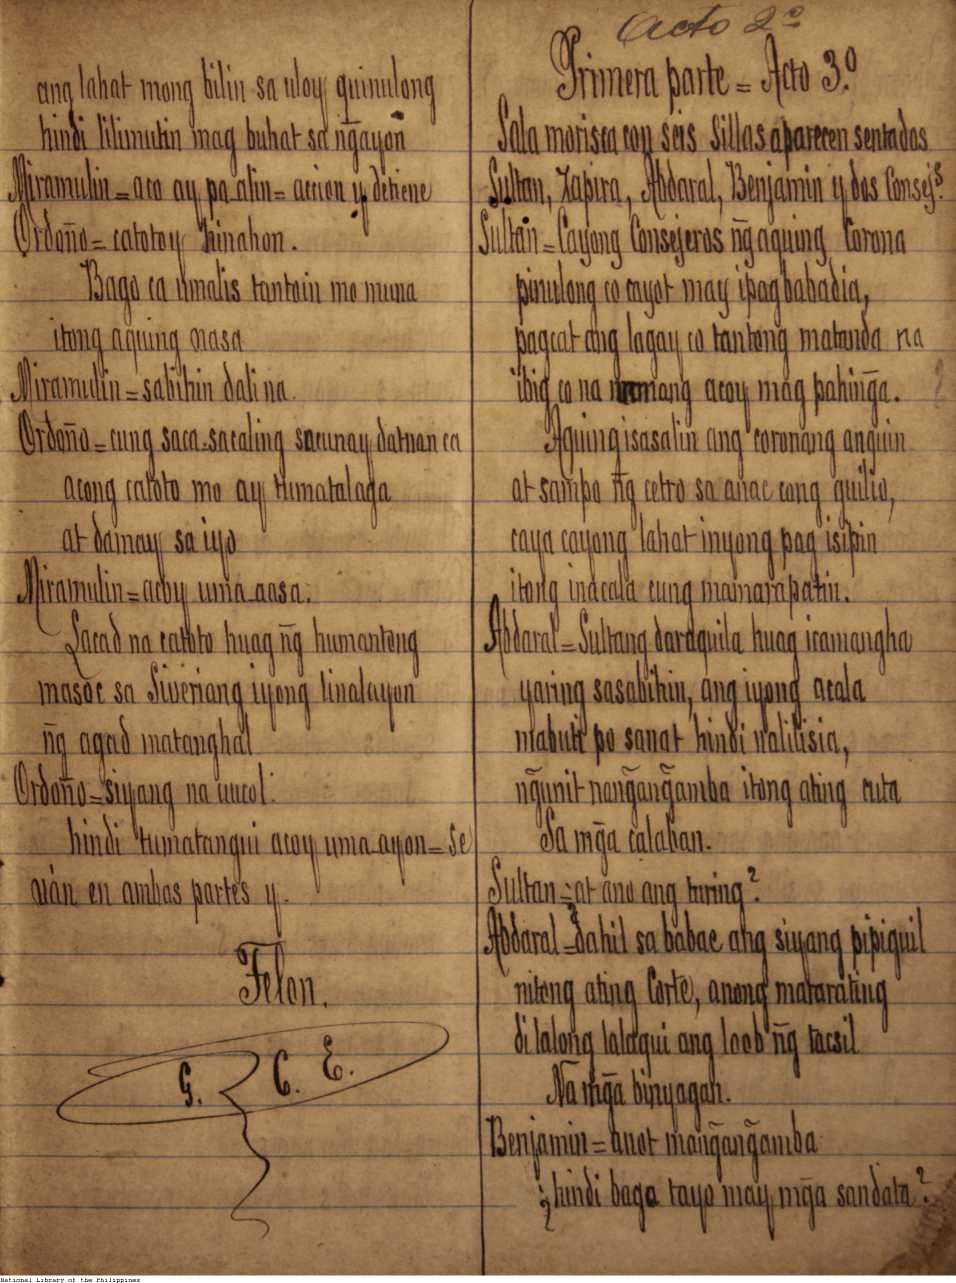 ang lahat mong bilin sa uloy quinulong
hindi lilimutin mag buhat sa ñgayon
Miramulin = aco ay pa atin = accion y detiene
Ordoño = catotoy hinahon.
Bago ca umalis tantoin mo muna
itong aquing nasa
Miramulin = sabihin dali na.
Ordoño = cung saca-sacaling sacunay datnan ca
acong catoto mo ay tumatalaga
at damay sa iyo
Miramulin = acoy uma-aasa.
Lacad na catoto huag ñg humantong
masoc sa Siveriang iyong linalayon
ñg agad matanghal
Ordoño = siyang na uucol.
hindi tumatangui acoy uma-ayon = Se
ván en ambas partes y.
Telon.
G. C. E.
Acto 2º
Primera parte = Acto 3.º
Sala morisca con seis sillas aparecen sentados
Sultan, Zapira, Abdaral, Benjamin y dos Consejs.
Sultan = Cayong Consejeros ñg aquing Corona
pinulong co cayot may ipagbabadia,
pagcat ang lagay co tantong matanda na
ibig co na mang acoy mag pahinga.
Aquing isasalin ang coronang anguin
at sampo ñg cetro sa anac cong guilio,
caya cayong lahat inyong pag isipin
itong inacala cung mamarapatin.
Abdaral = Sultang daraquila huag icamangha
yaring sasabihin, ang iyong acala
mabuti po sanat hindi nalilisia,
ñgunit nangangamba itong ating cuta
Sa mga calaban.
Sultan = at ano ang turing?
Abdaral = dahil sa babae ang siyang pipiguil
nitong ating Corte, anong mararating
di lalong lalaqui ang loob ñg tacsil
Na mga binyagan.
Benjamin = anot mangangamba
¿hindi baga tayo may mga sandata?
National Library of the Philippines